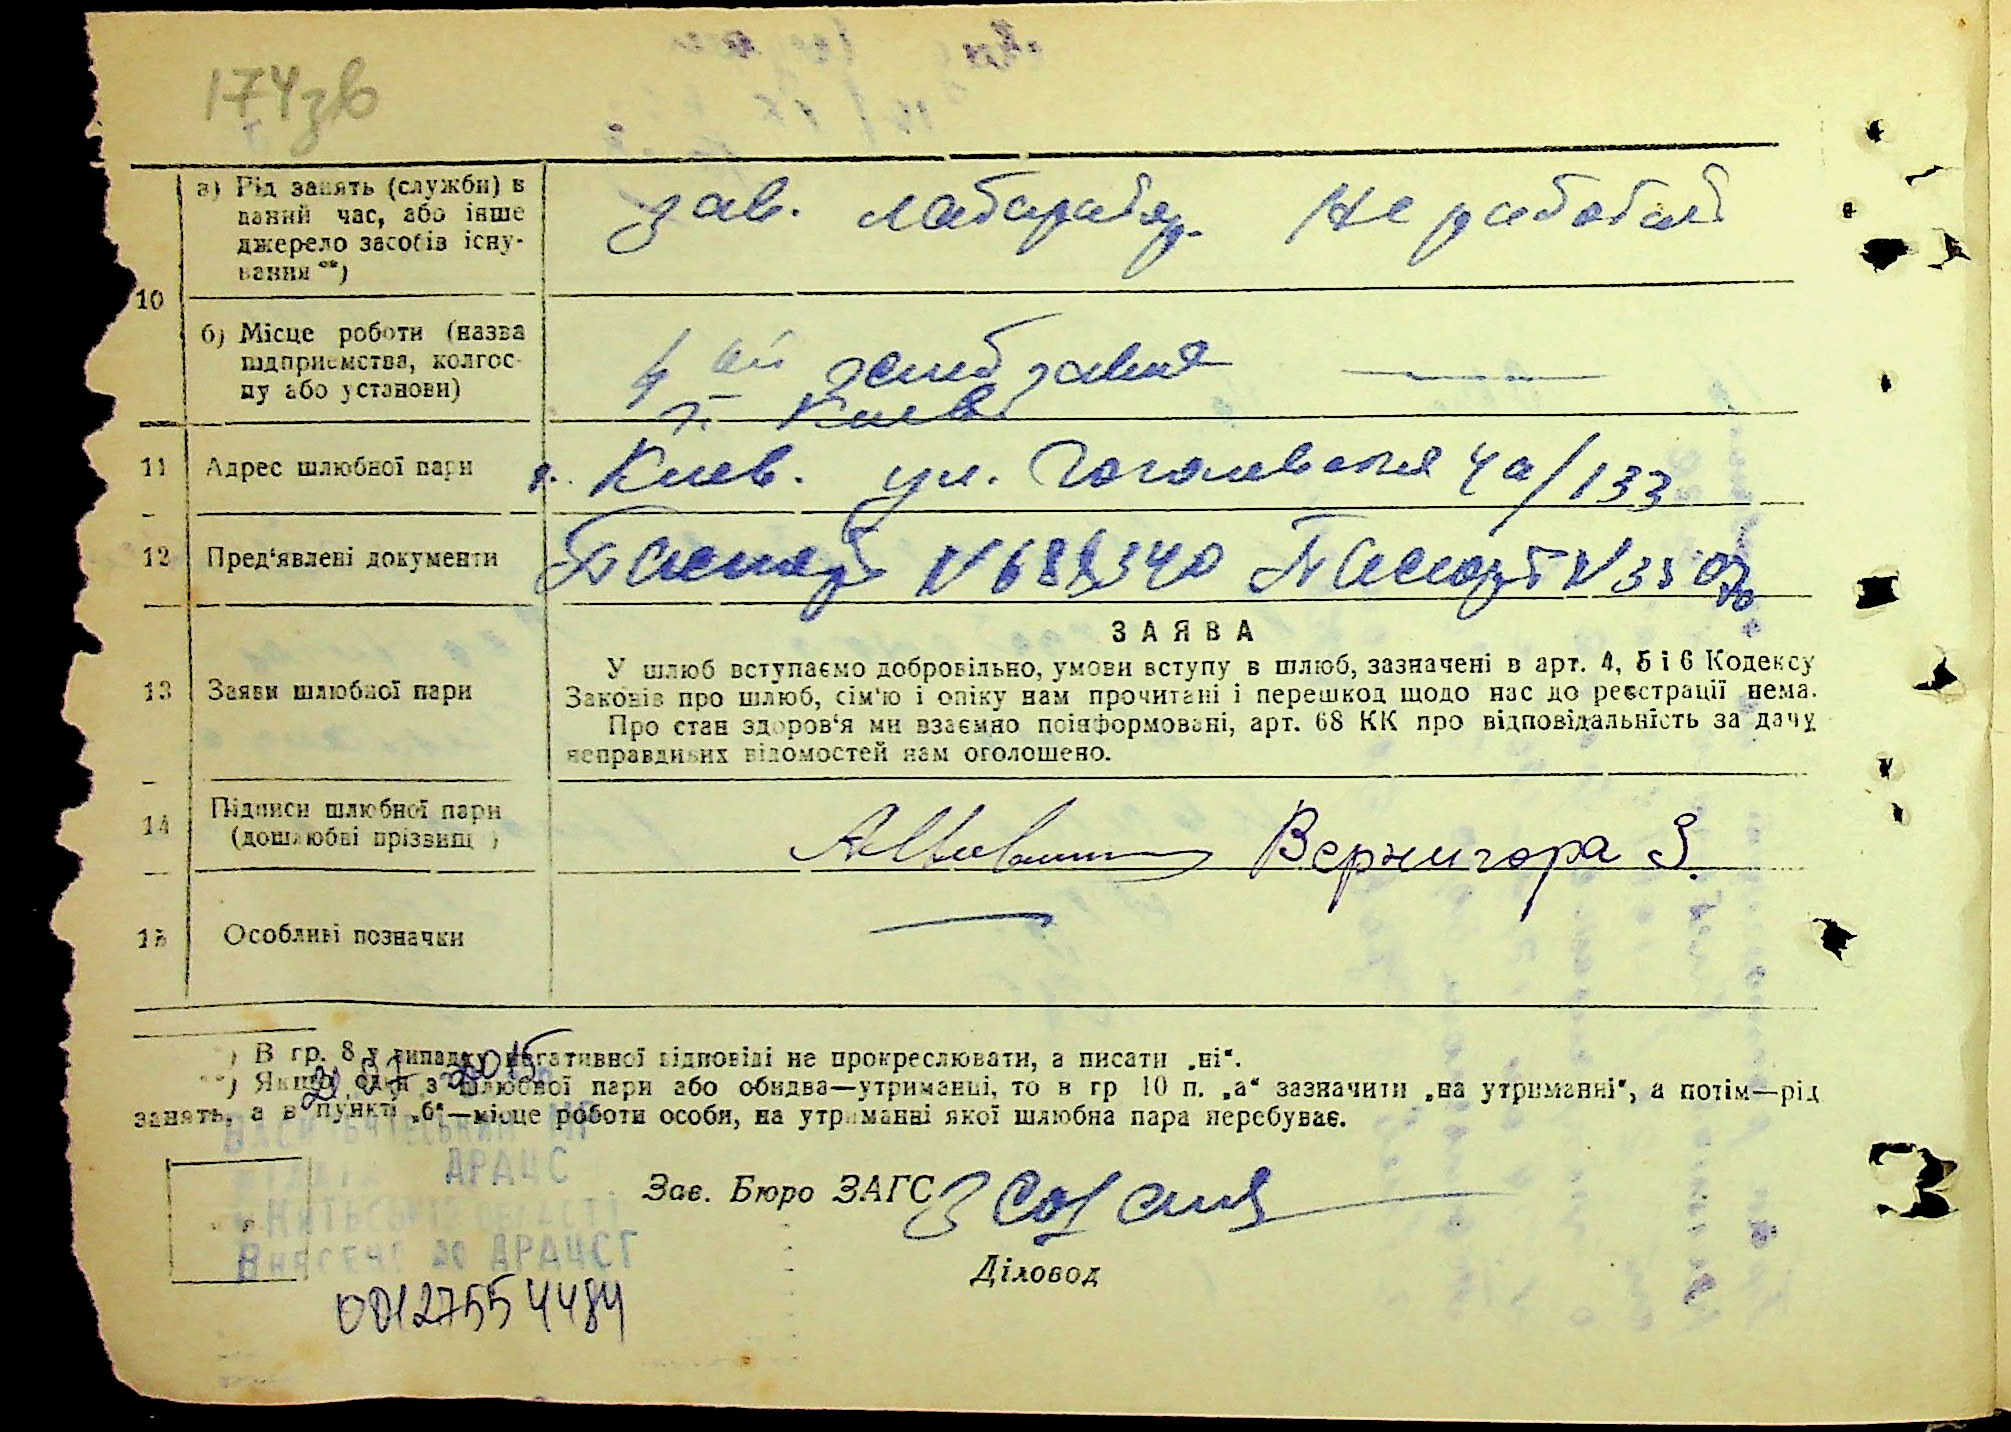 174зв
10
а) Рід занять (служби) в
даний час, або інше
джерело засобів існу-
вання **)
зав. лаборатор. Не работает
б) Місце роботи (назва
підприємства, колгос-
пу або установи)
4
г. Киев
11 Адрес шлюбної пари г. Киев. ул. Гоголевская 4а/133
12 Пред'явлені документи Паспорт N Паспорт N
13 Заяви шлюбної пари
ЗАЯВА
У шлюб вступаємо добровільно, умови вступу в шлюб, зазначені в арт. 4, 5 і 6 Кодексу
Законів про шлюб, сім'ю і опіку нам прочитані і перешкод щодо нас до реєстрації нема.
Про стан здоров'я ми взаємно поінформовані, арт. 68 КК про відповідальність за дачу
неправдивих відомостей нам оголошено.
14 Підписи шлюбної пари
(дошлюбні прізвищ )
Вернигора
15 Особливі позначки
*) В гр. 8 у випадку негативної відповіді не прокреслювати, а писати „ні“.
**) Якщо один з шлюбної пари або обидва—утриманці, то в гр 10 п. „а“ зазначити „на утриманні“, а потім—рід
занять, а в пункті „б“—місце роботи особи, на утриманні якої шлюбна пара перебуває.
АРАЦС
Київської області
Внесено до ДРАЦСГ
00127554484
Зав. Бюро ЗАГС
Діловод